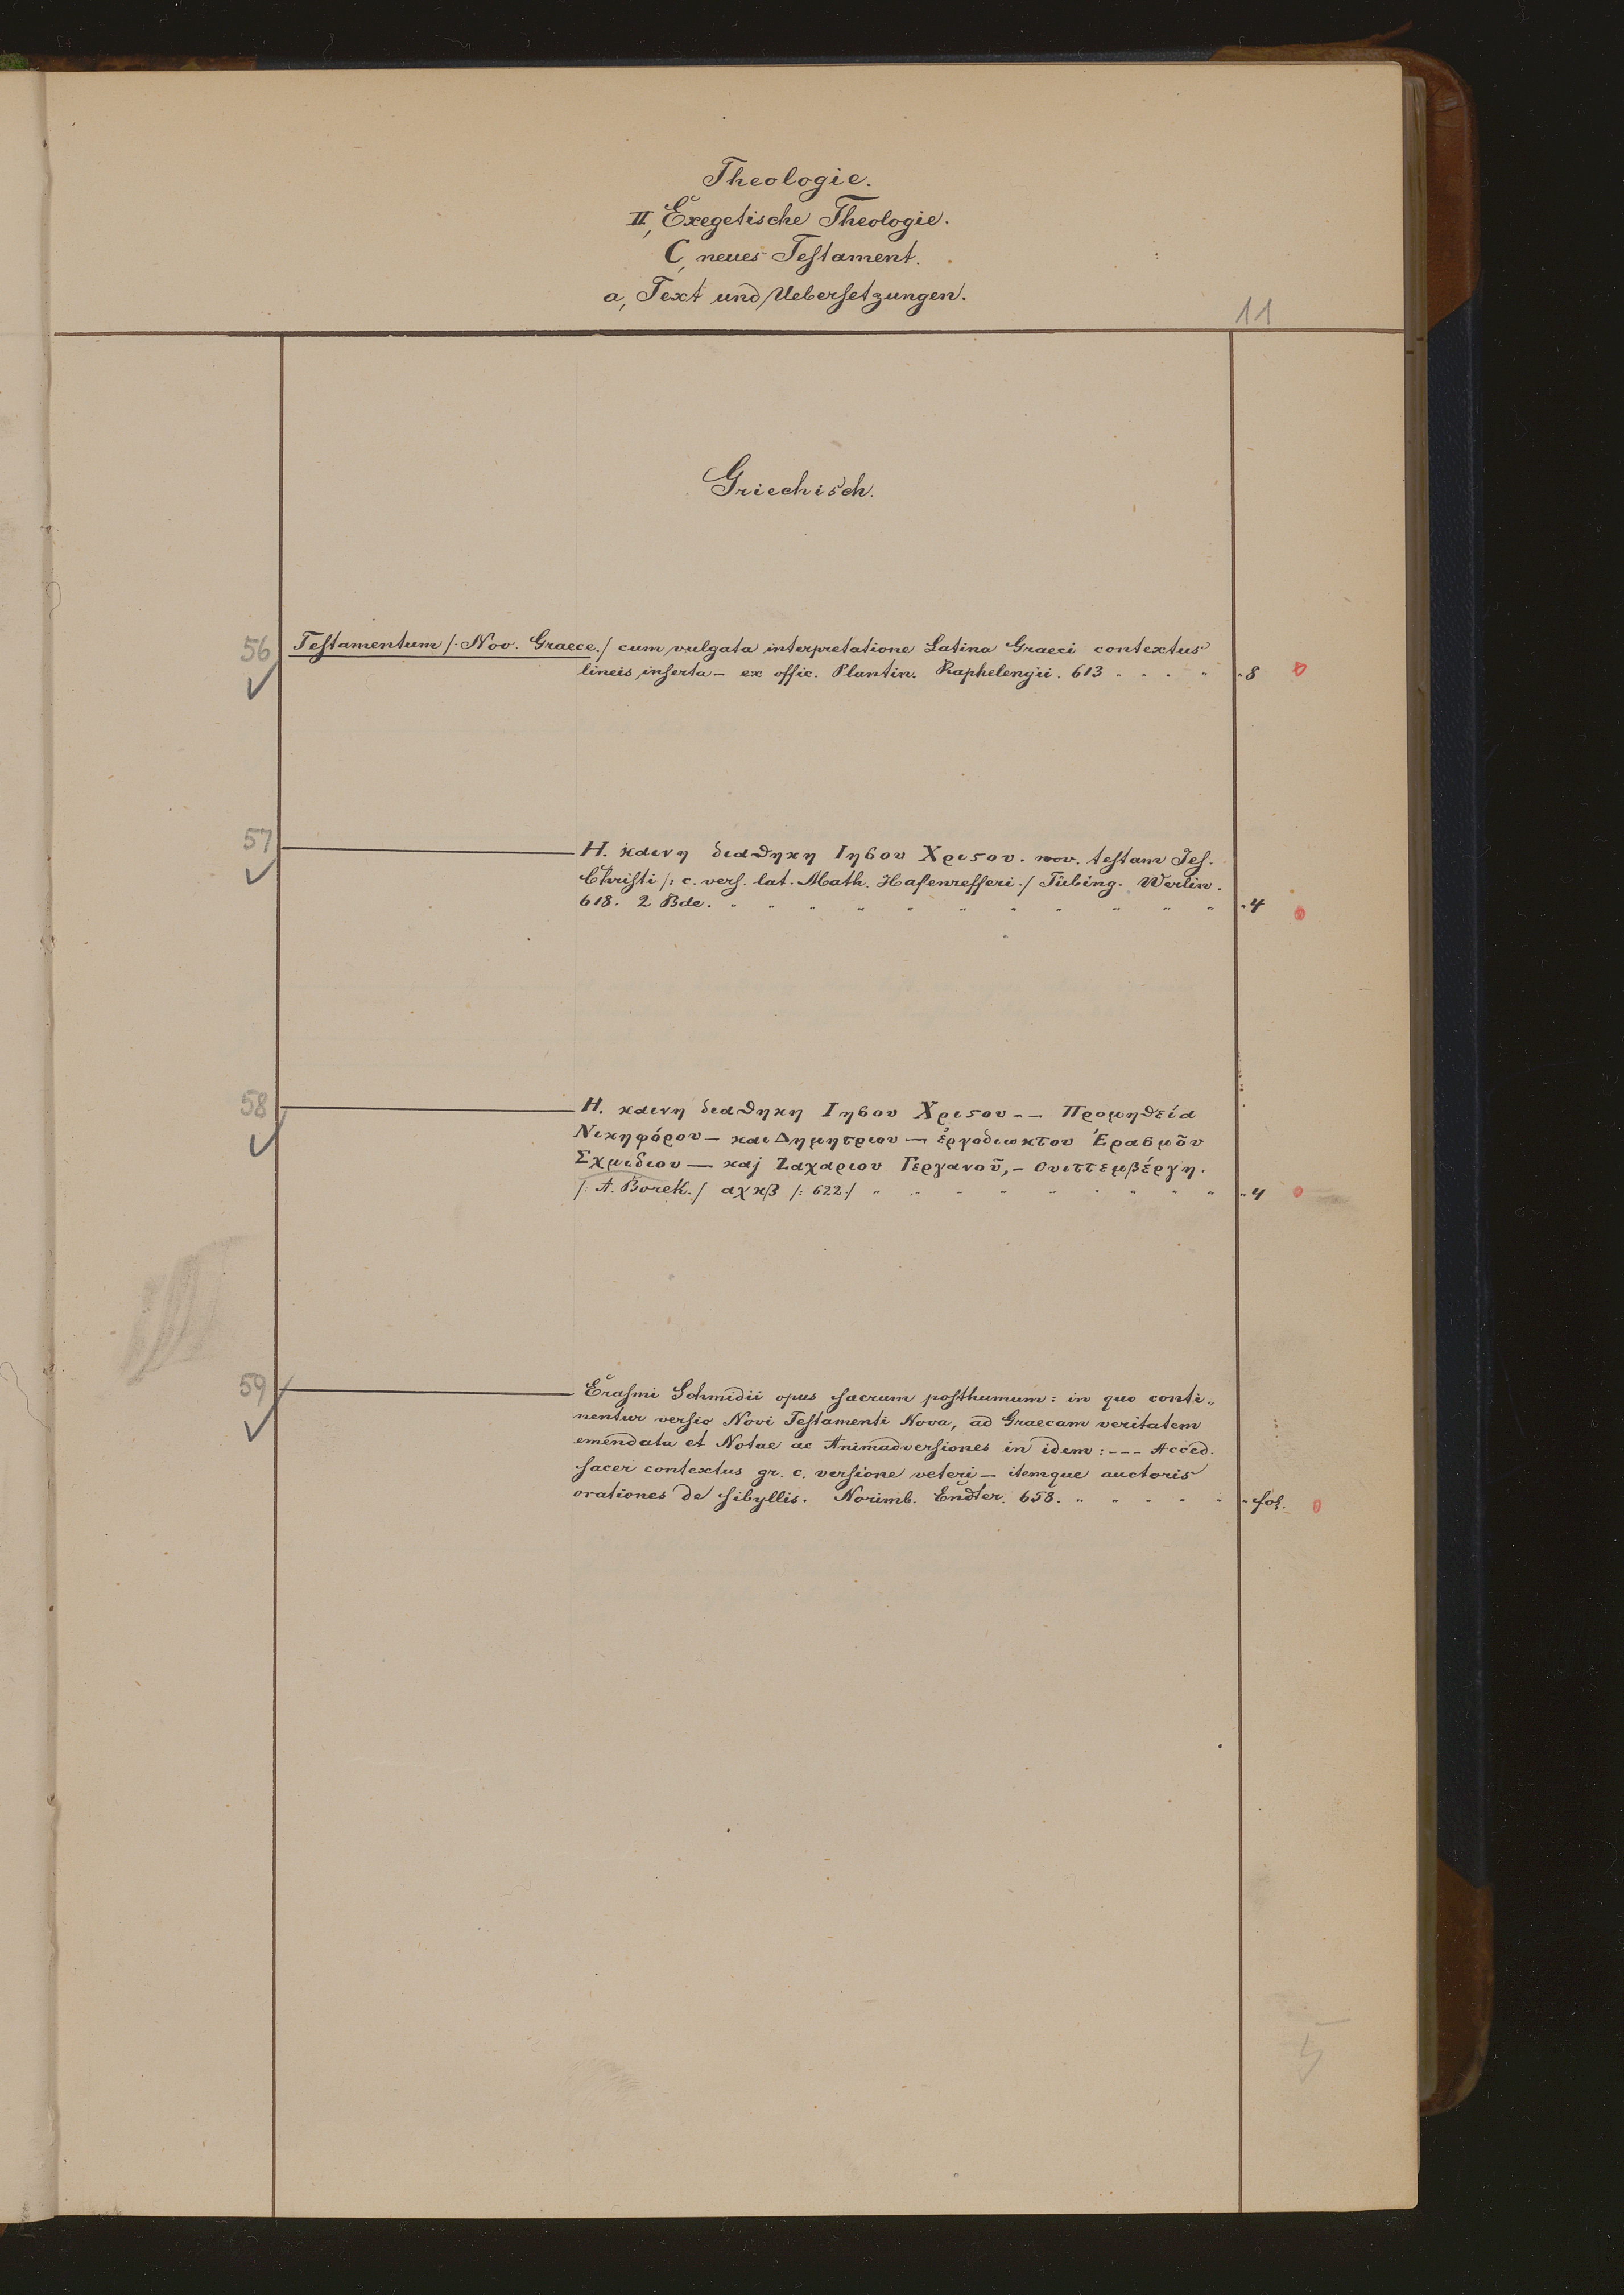 Theologie.
II, Exegetische Theologie.
C, neues Testament.
a, Text und Uebersetzungen.
11
Griechisch.
56 Testamentum /: Nov. Graece./ cum vulgata interpretatione Latina Graeci contextus
lineis inserta – ex offic. Plantin. Raphelengii. 613 . . . „ „ 8
57 Η. καινη διαθηκη Ιησου Χριςου. nov. testam Jes.
Christi /: c. vers. lat. Math. Hafenrefferi./ Tübing. Werlin.
618. 2 Bde. „ „ „ „ „ „ „ „ „ „ „ „ 4
58 Η. καινη διαθηκη Ιησου Χριςου –– Προμηθεία
Νικηφόρου – και Δημητριου – ἐργοδιωκτου Ἐρασμο͂υ
Σχμιδιου — καj Ζαχαριου Γεργανοῦ, – Ουιττεμβέργη.
/: A. Borek./ αχκβ /: 622./ „ „ „ „ „ „ „ „ „ 4
59 Erasmi Schmidii opus sacrum posthumum: in quo conti„
nentur versio Novi Testamenti Nova, ad Graecam veritatem
emendata et Notae ac Animadversiones in idem: ––– Acced.
sacer contextus gr. c. versione veteri – itemque auctoris
orationes de sibyllis. Norimb. Endter. 658. „ „ „ „ „ „ fol.
5